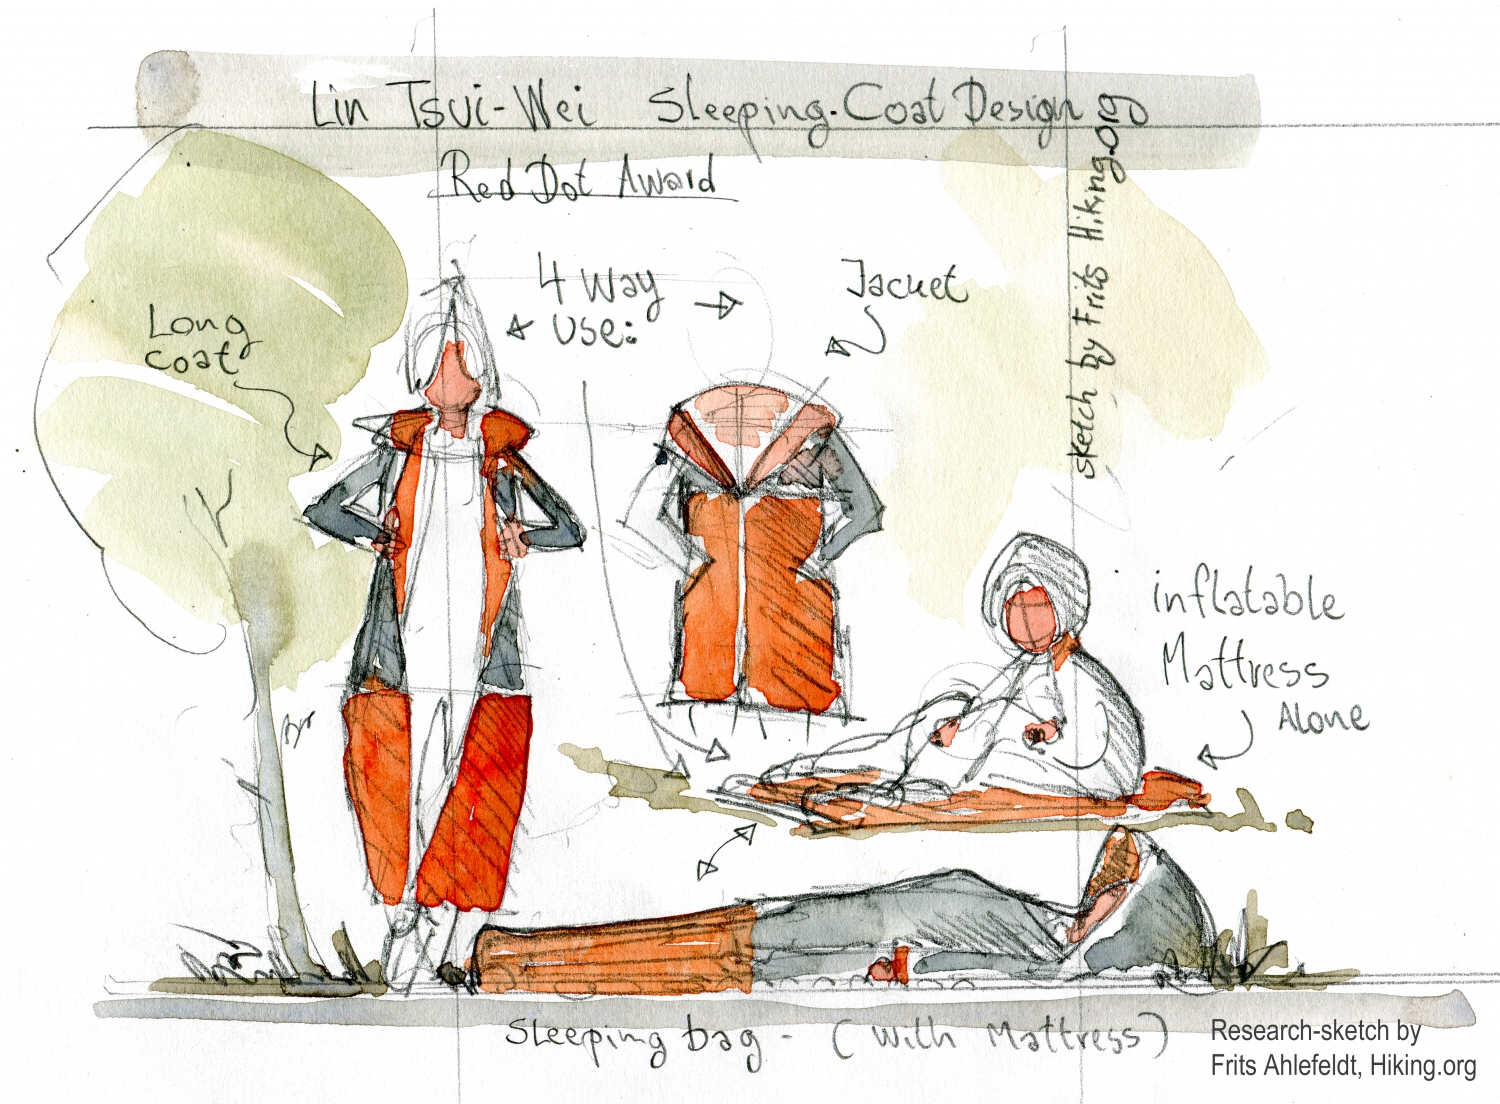 Lin Tsui-Wei Sleeping-Coat Design
Red Dot Award
sketch by Frits Hiking.org
4 Way
Use:
Jacket
Long
coat
inflatable
Mattress
Alone
Sleeping bag - (with Mattress)
Research-sketch by
Frits Ahlefeldt, Hiking.org